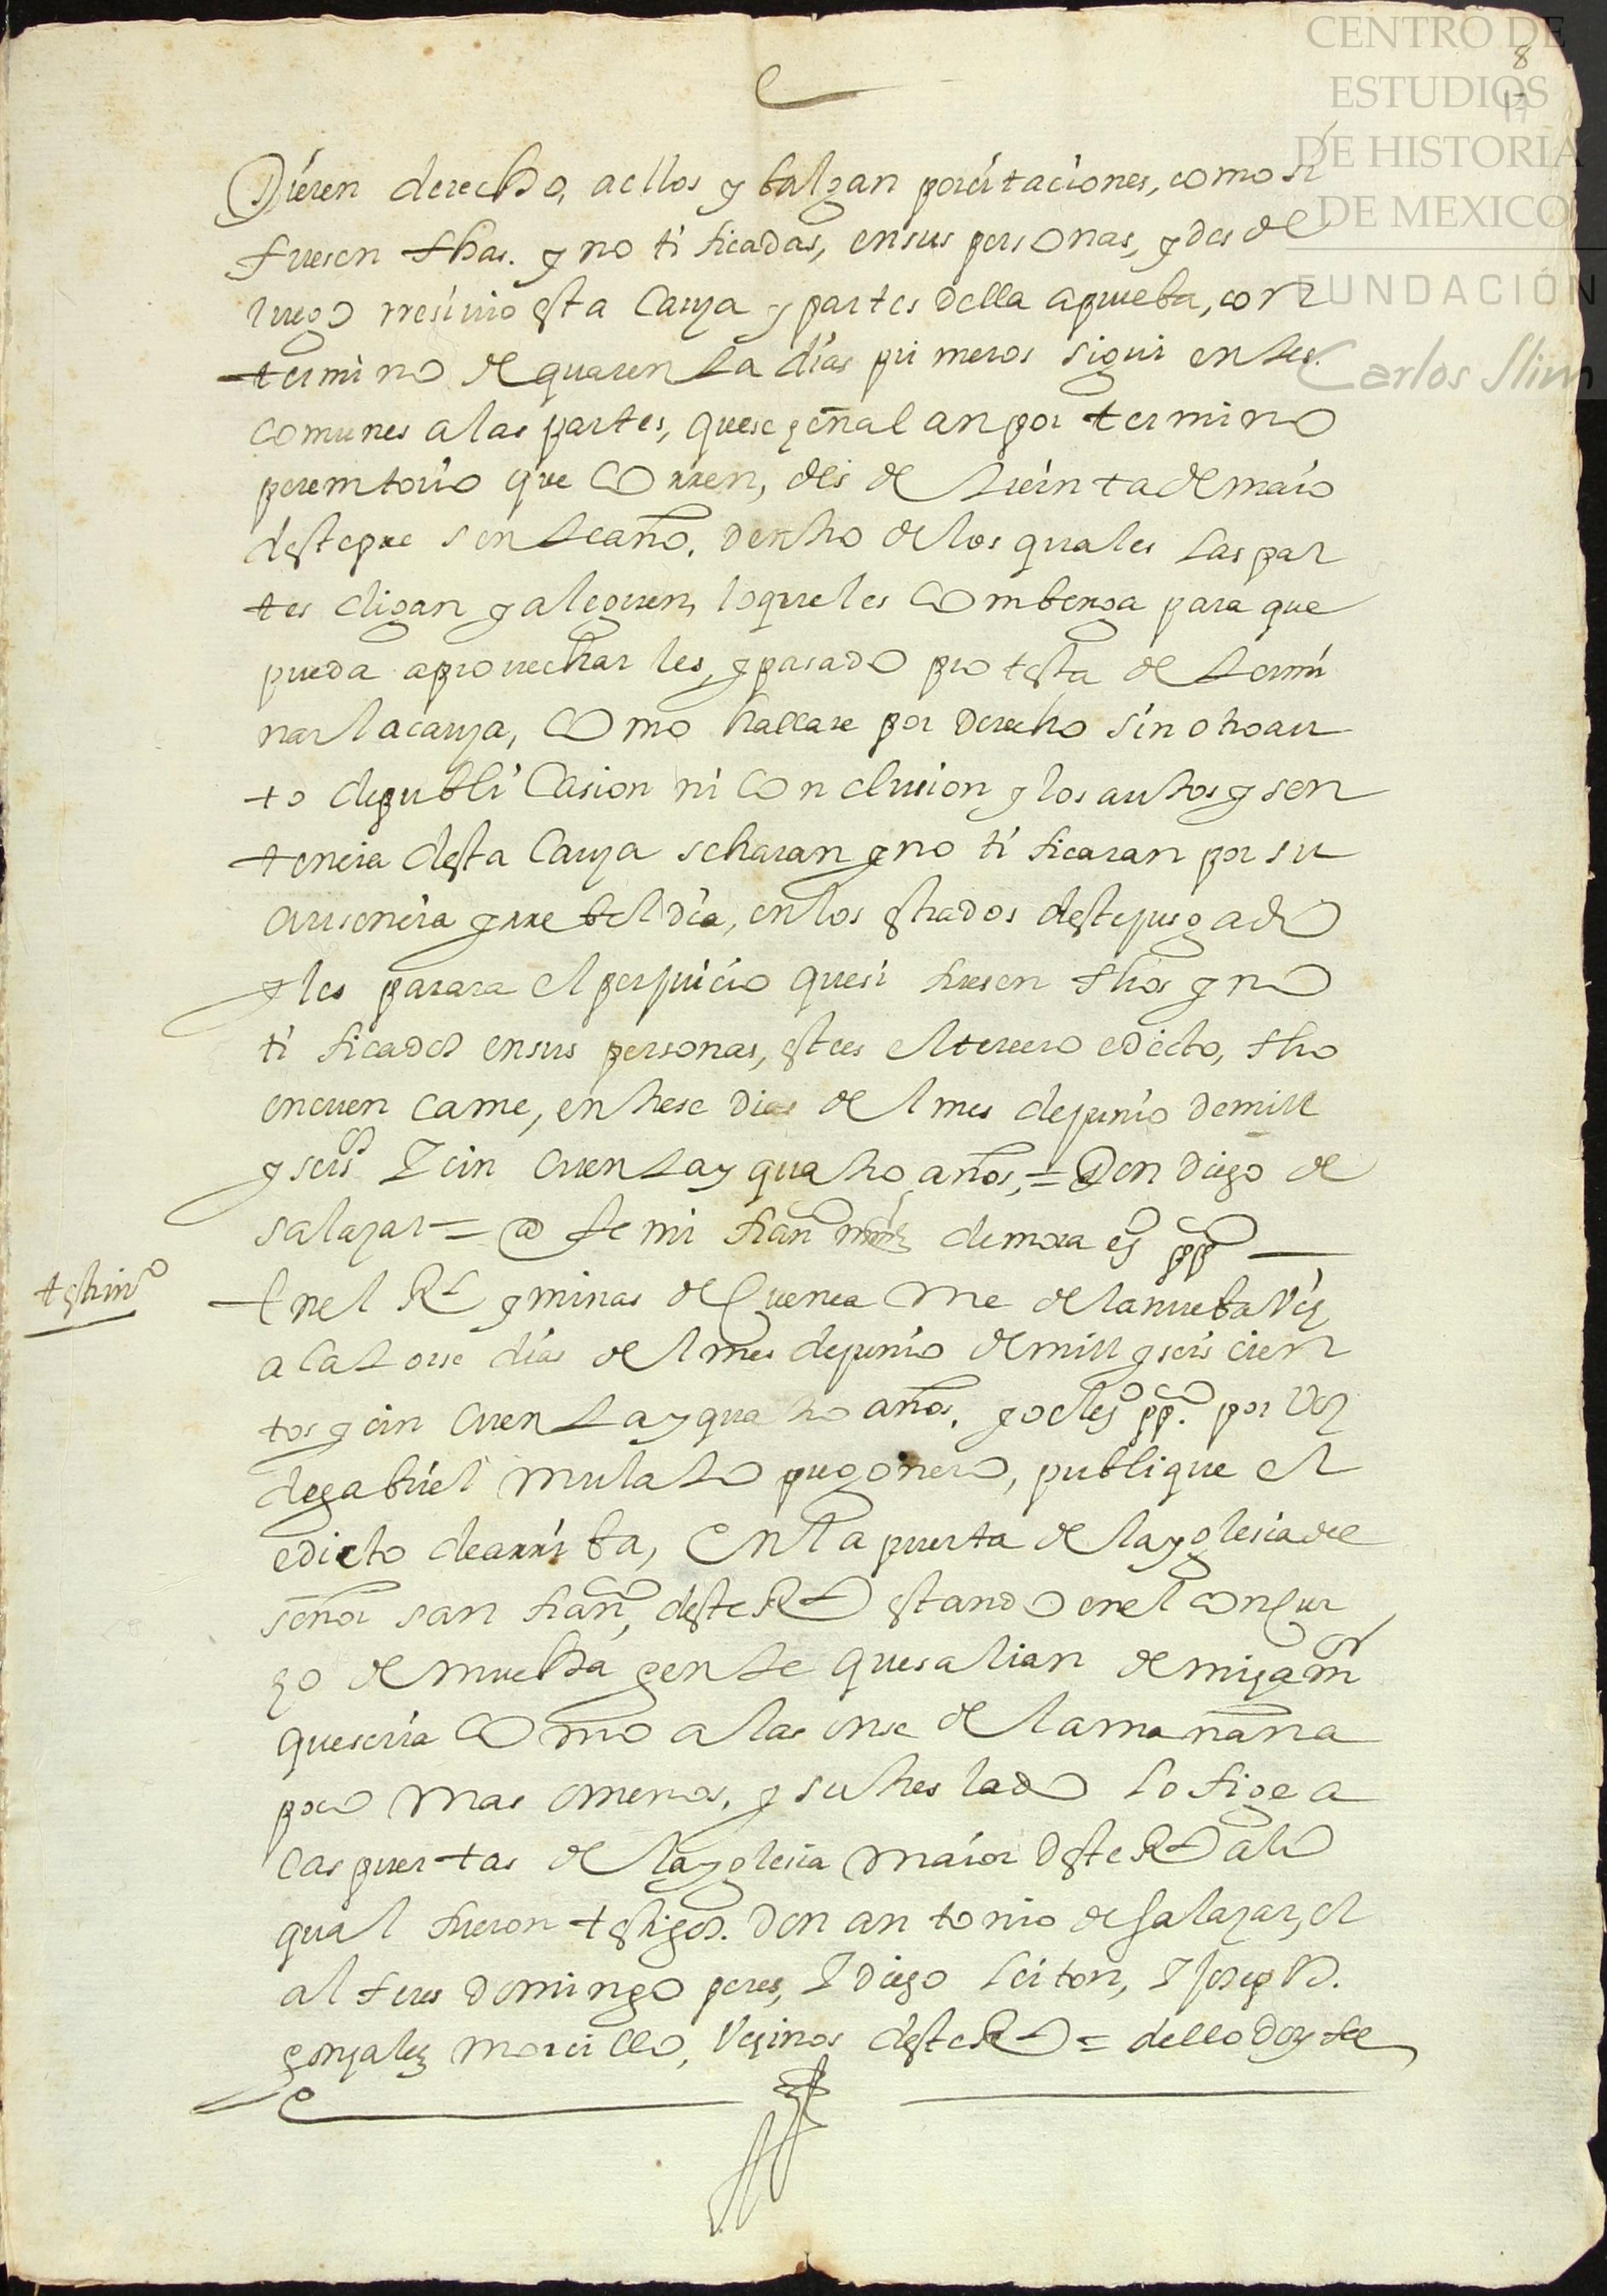 CENTRO DE
ESTUDIOS
DE HISTORIA
DE MEXICO
FUNDACIÓN
Carlos Slim
8
Dieren derecho, aellos y balgan por sitaciones, como si
fuesen fhas. y no ti ficadas, ensus personas, y des de
luego rresivio esta Cauza y partes della aprueba, con
termino de quarenta días pri meros sigui entes.
comunes alas partes, quese zeñal an por termino
peremtorio que Corren, des de treinta de maio
deste pre sente año. dentro delos quales las par
tes digan y aleguen, loqueles Combenga para que
pueda aprovechar les, y pasado protesta de termi
nar lacauza, Como hallare por derecho sin otro au
to depubli Casion ni Conclusion y los autos y sen
tencia desta Cauza seharan y no ti ficaran por su
ausencia y rrebeldia, enlos estrados deste jusgado
y les parara el perjuicio quesi fuesen fhos y no
ti ficados ensus personas, estees eltercero edicto, fho
encuen came, entrese dias del mes dejunio demill
y seisº I cin cuenta y quatro años, = Don diego de
salazar = @ te mi franº mrnz demora esº ppº
testimº
Enel Rl y minas de Cuenca me dela nueba Viz
a Catorse días del mes dejunio de mill y seis cien
tos y cin cuenta y quatro años. yo elesº ppº. por Voz
degabriel mulato pregonero, publique el
edicto dearriba, en la puerta de la yglesia de
señor san franº, deste Rl estando enel concur
zo de mucha gente que salian de miza mr
queseria Como a las onse de lamañana
poco mas omenos, y su treslado lo fige a
las puertas de la yglesia maior deste Rl alo
qual fueron testigos. Don antonio de salazar, el
alferes Domingo peres, I diego leiton, I Joseph.
gonzalez morcillo, Vezinos deste Rl = dello Doy fee